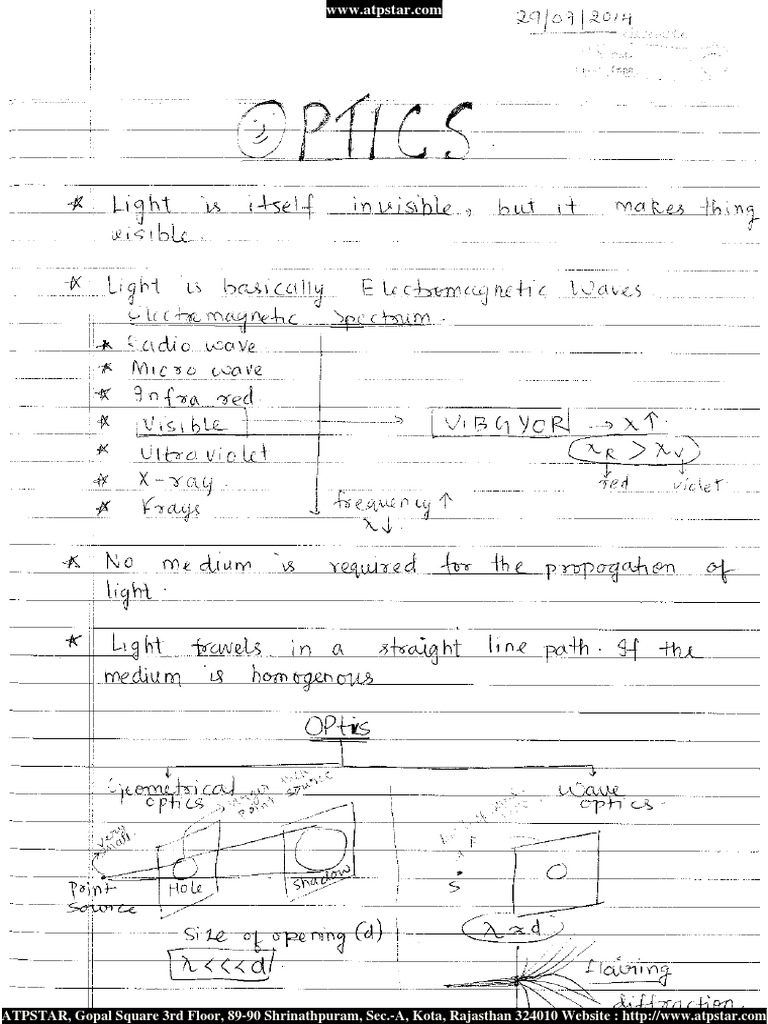 www.atpstar.com
29/07/2014
OPTICS
* Light is itself invisible, but it makes thing
visible.
* Light is basically Electromagnetic Waves
Electromagnetic Spectrum.
* Radio wave
* Micro wave
* Infra red
* Visible → VIBGYOR → λ↑
* Ultraviolet λR > λV
* X-ray. red violet
* γrays frequency ↑
λ↓
* No medium is required for the propogation of
light.
* Light travels in a straight line path. If the
medium is homogenous
OPtics
Geometrical
optics
Wave
optics.
larger then
point source
very
small
Point
Source
Hole
Shadow
S
Size of opening (d)
λ<<<d
λ≈d
flairing
diffraction
ATPSTAR, Gopal Square 3rd Floor, 89-90 Shrinathpuram, Sec.-A, Kota, Rajasthan 324010 Website : http://www.atpstar.com